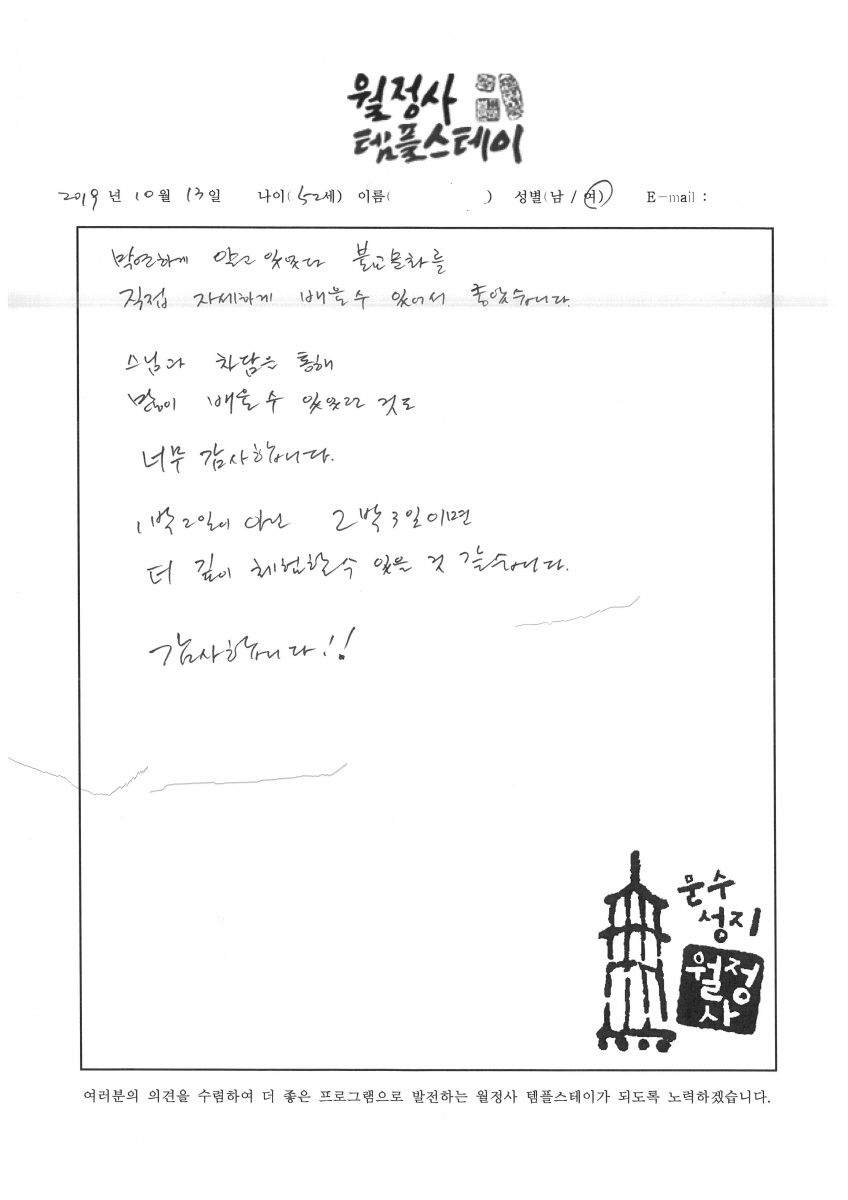 월정사
템플스테이
2019년 10월 13일 나이(52세) 이름( ) 성별(남 / 여) E-mail :
막연하게 알고 있었던 불교문화를
직접 자세하게 배울수 있어서 좋았습니다.
스님과 차담을 통해
많이 배울수 있었던 것도
너무 감사합니다.
1박2일이 아닌 2박3일이면
더 깊이 체험할수 있을 것 같습니다.
감사합니다!!
문수
성지
월정
사
여러분의 의견을 수렴하여 더 좋은 프로그램으로 발전하는 월정사 템플스테이가 되도록 노력하겠습니다.